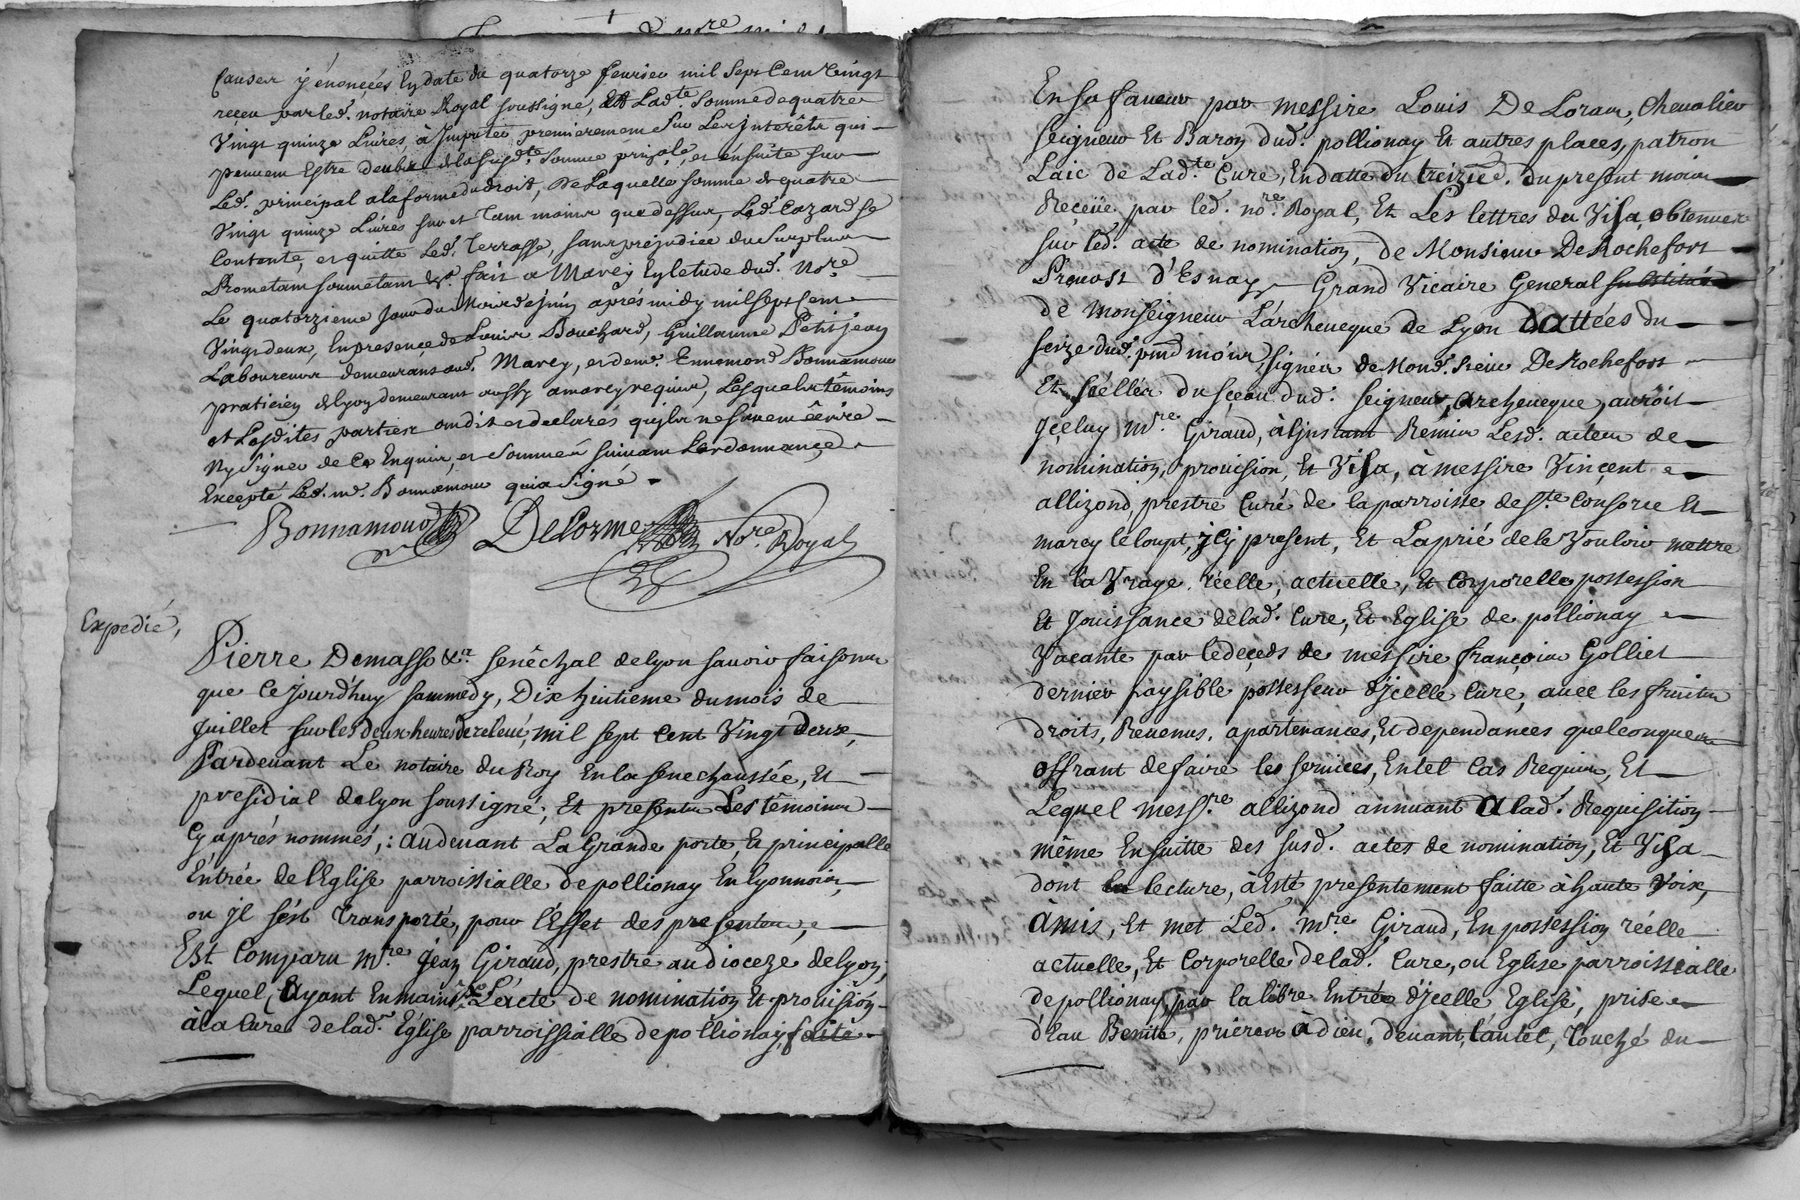 Causes y énoncées en date du quatorze fevrier mil sept cent vingt
receu par led. notaire Royal soussigné, Et Ladte. Somme de quatre
Vingt quinze Livres, à Imputer premierement sur Les Interêts qui
peuvent Estre deubs de la susdte. Somme prinpale, et ensuite sur
Led. principal a la forme du droit, de Laquelle somme de quatre
Vingt quinze Livres sur et tam moins que dessus, Led. Cozard se
Contente, et quitte Led. Terrasse, sans prejudice du surplus
Prometant soumetant &a. fait a Marcy En letude dud. Nore.
Le quatorzieme jour du Mois de Juin aprés midy mil sept cent
Vingt deux, En presence de Louis Bouchard, Guillaume Petit jean
Laboureurs demeurans aud. Marcy, et de mr. Ennemond Bonnamour
praticien de lyon demeurant aussy a marcy requis, Lesquels têmoins
et Lesdites parties ont dit et declarés quils ne savent écrire
Ny signer de Ce Enquis, et Sommés suivant Lordonnance
Excepté Led. mr. Bonnamour qui a signé.
Bonnamour DeLorme Nore. Royal
Expedié,
Pierre Demasso &a. senêchal de lyon savoir faisons
que Ce Jourdhuy sammedy, Dix huitieme du mois de
Juillet sur les deux heures de relevé, mil sept cent Vingt deux,
Pardevant Le notaire du Roy En la senechaussée, Et
presidial de lyon soussigné, Et presents Les têmoins
Cy aprés nommés,: audevant La Grande porte, Et principalle
Entrée de l'Eglise parroissialle de pollionay En lyonnois,
ou Jl s'est transporté, pour l'Effet des presentes,
Est Comparu mre. Jean Giraud, prestre au dioceze de lyon,
Lequel, Ayant En mains L'acte de nomination Et provision
à la Cure de lad. Eglise parroissialle de pollionay, faite
En sa faveur par messire Louis De Loras, Chevalier
Seigneur Et Baron dud. pollionay Et autres places, patron
Laic de Ladte. Cure, En datte du treizie. du present mois
Receüe par led. nore. Royal, Et Les lettres du Visa, obtenues
sur led. acte de nomination, de Monsieur De Rochefort
Prevost d'Esnay, Grand Vicaire General substitué
de Monseigneur L'archeveque de Lyon Dattées du
seize dud. pnt mois signés de Mond. sieur De Rochefort
Et scellés du sceau dud. seigneur, Archeveque, auroit
Jceluy mre. Giraud, à l'instant Remis Lesd. actes de
nomination, provision, Et Visa, à messire Vincent
allizond, prestre Curé de la parroisse de ste. Consorce Et
marcy le loupt, Jcy present, Et La prié de le Vouloir mettre
En la Vraye. réelle, actuelle, Et Corporelle possession
Et Jouissance de lad. Cure, Et Eglise de pollionay
Vacante par le deceds de messire françois Golliet
dernier paysible possesseur d'Jcelle Cure, avec les fruits
droits, Revenus, apartenances, Et dependances quelconques
offrant de faire les services, En tel Cas Requis, Et
Lequel messre. allizond annuant A lad. Requisition
même En suitte des susd. actes de nomination, Et Visa
dont la lecture, à esté presentement faitte à haute Voix,
à mis, Et met Led. mre. Giraud, En possession réelle
actuelle, Et Corporelle de lad. Cure, ou Eglise parroissialle
de pollionay, par la libre Entrée d'Jcelle Eglise, prise
d'Eau Benite, prieres à dieu, devant l'autel, touché du